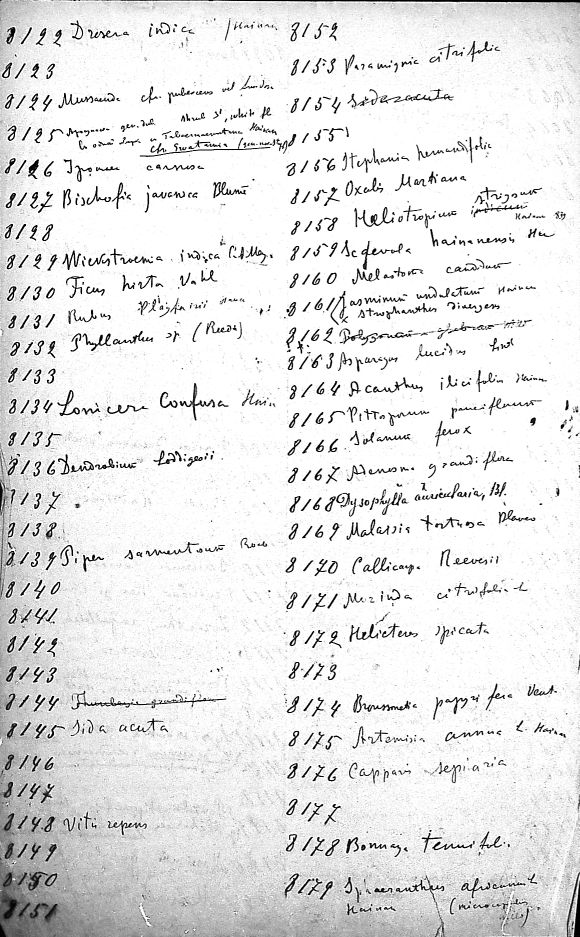 8122 Drosera indica / Hainan
8123
8124 Mussaenda cfr. pubescens vel
8125 Apocynac. gen. dub. shrub 3', white fl
Tabernaemontana Hainan
cfr. Gwatamia (gen. nov. 

8126 Ipomoea carnosa
8127 Bischofia javanica Blume
8128
8129 Wickstroemia indica C.A. Mey.
8130 Ficus hirta Vahl
8131 Rubus Playfairii
8132 Phyllanthus sp (Reeda)
8133
8134 Lonicera Confusa Hain
8135
8136 Dendrobium Loddigesii
8137
8138
8139 Piper sarmentosum Roxb
8140
8141
8142
8143
8144 Thunbergia grandiflora
8145 Sida acuta
8146
8147
8148 Vitis repens
8149
8150
8151
8152
8153 Paramignia citrifolia
8154 Sida acuta
8155
8156 Stephania hernandifolia
8157 Oxalis Martiana
strigosum
8158 Heliotropium indicum
Hainan
8159 Scaevola hainanensis Han
8160 Melastoma candidum
8161 Jasminum undulatum Hainan
Strophanthus divergens
8162 Polygonum
8163 Asparagus lucidus Lindl
8164 Acanthus ilicifolius Hainan
8165 Pittosporum pauciflorum
8166 Solanum ferox
8167 Adenosma grandiflora
8168 Dysophylla auricularia, Bl.
8169 Malaisia tortuosa Blanco
8170 Callicarpa Reevesii
8171 Morinda citrifolia L
8172 Helicteres spicata
8173
8174 Broussonetia papyrifera Vent.
8175 Artemisia annua L. Hainan
8176 Capparis sepiaria
8177
8178 Bonnaya tenuifol.
8179 Sphaeranthus africanus L
Hainan (microcephalus